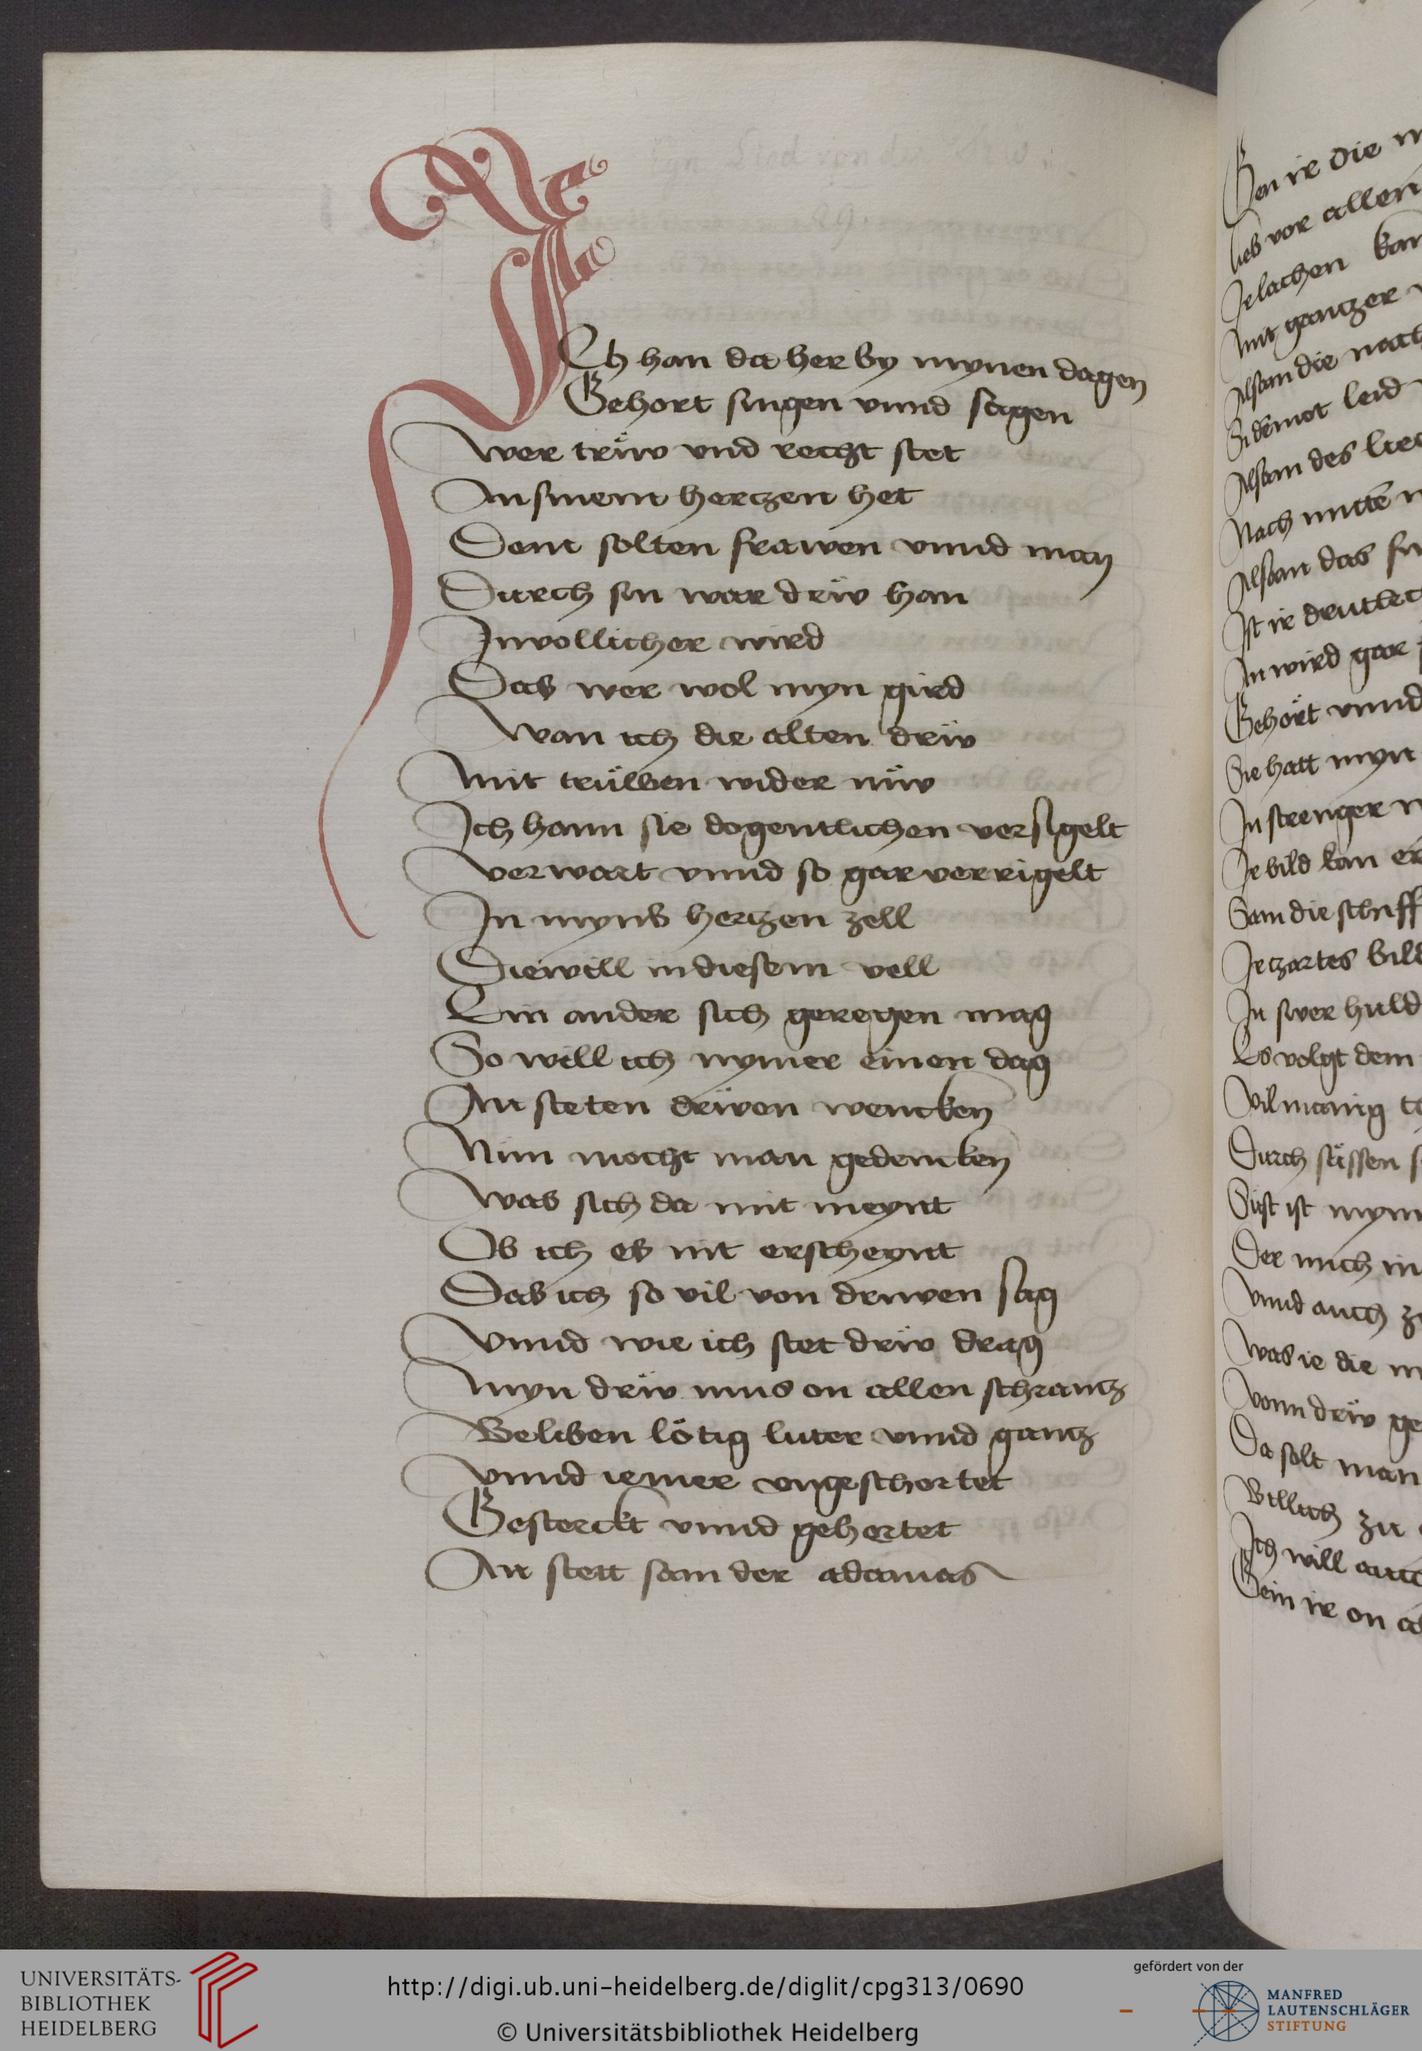 Ich han da her by mynen dagen
Gehort singen vnnd sagen
wer trüw vnd recht stet
An sinem hertzen het
Dem solten frawen vnnd man
Durch sin war drüw han
In vollicher wird
Das wer wol myn gird
wan ich die alten drüw
Mit trüwen wider nüw
Ich hann sie dogentlichen versigelt
verwart vnnd so gar verrigelt
In myns hertzen zell
Diewill in diesem vell
Ein ander sich geregen mag
So will ich nymer einen dag
An steten drüwen wencken
Nun mocht man gedencken
was sich da mit meynt
Ob ich es nit erscheynt
Das ich so vil von druwen sag
vnnd wie ich stet drüw drag
Myn drüw mus on allen schrantz
Beliben lötig luter vnnd gantz
vnnd iemer vngeschortet
Gesterckt vnnd gehertet
An stett sam der adamas
Gen ir die
lieb vor allen
Ir lachen kan
Mit gantzer
Alsam die
leid
Alsam des
Nach mitten
Alsam das
Ist ir
In wird gar
Gehört vnnd
Sie hatt myn
In strenger
Ir bild kan
Sam die schiff
Ir zartes bild
In siner huld
Es volgt dem
vil manig
Durch süssen
Sust ist mynn
Der mich in
vnnd auch
was ie die
vonn drüw
Da solt man
Billich zu
Ich will
Gein ir on
UNIVERSITÄTS-
BIBLIOTHEK
HEIDELBERG
http://digi.ub.uni-heidelberg.de/diglit/cpg313/0690
© Universitätsbibliothek Heidelberg
gefördert von der
MANFRED
LAUTENSCHLÄGER
STIFTUNG